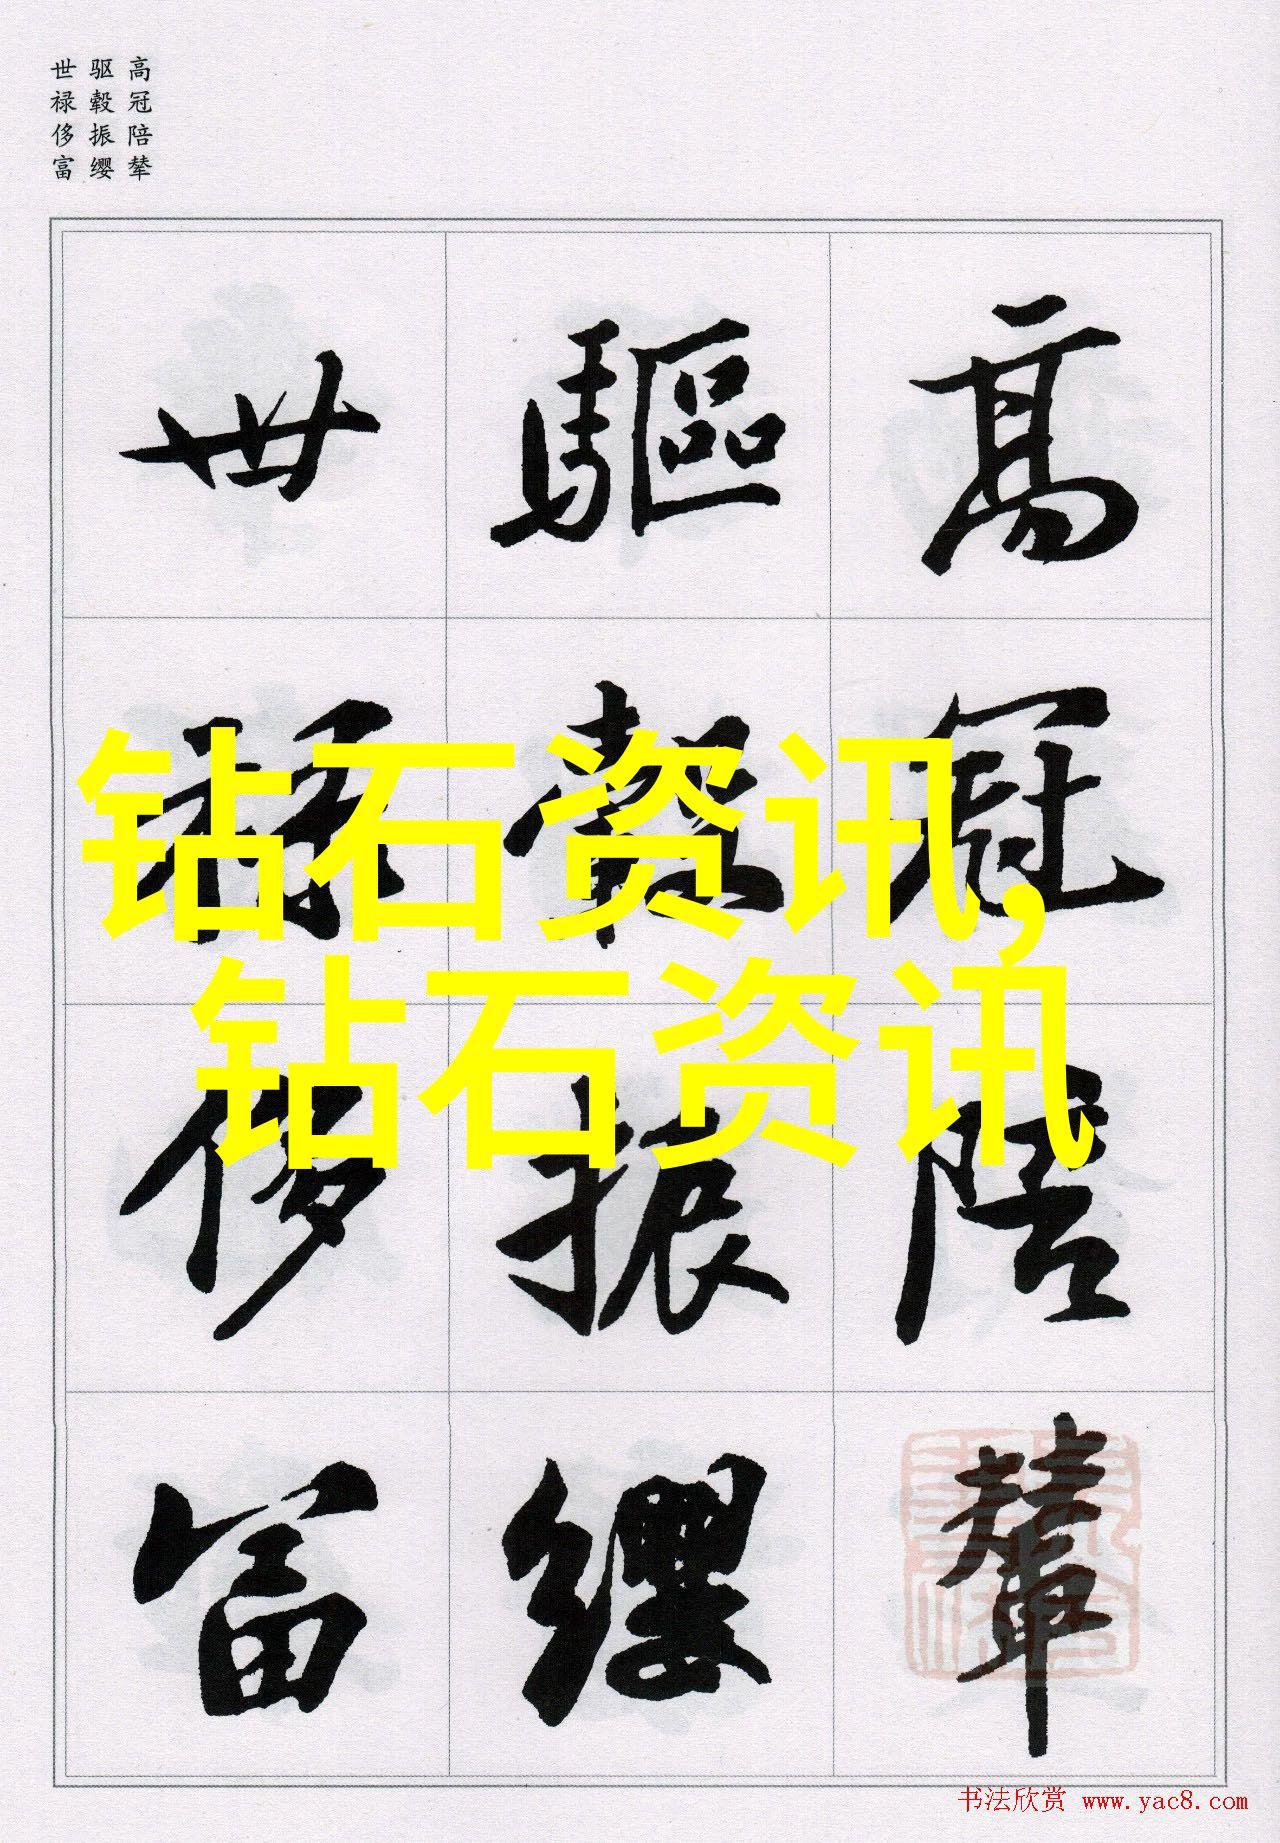 高冠陪辇
驱毂振缨
世禄侈富
高冠陪輦
驅轂振纓
世祿侈富
钻石资讯,
钻石资讯
书法欣赏 www.yac8.com